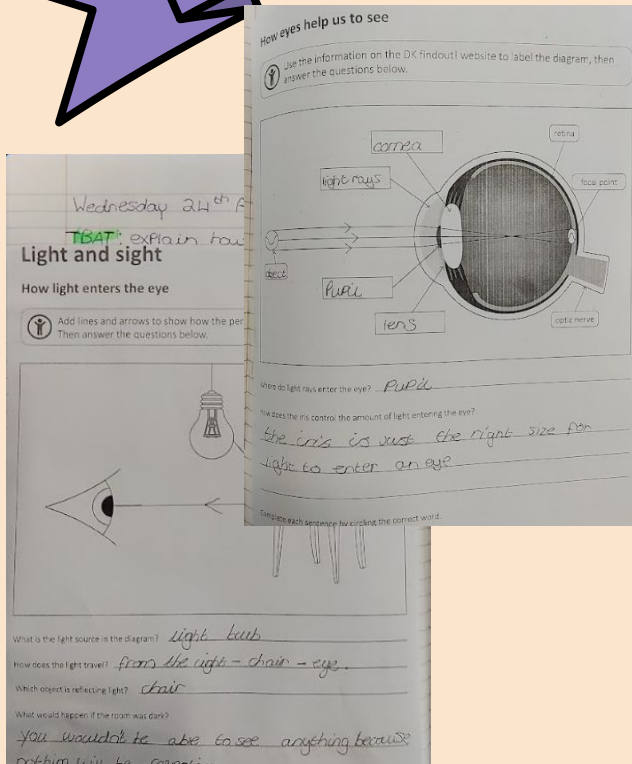 How eyes help us to see
Use the information on the DK findout! website to label the diagram, then
answer the questions below.
cornea
retina
light rays
focal point
object
Pupil
lens
optic nerve
Where do light rays enter the eye? Pupil
How does the iris control the amount of light entering the eye?
the iris is Just the right size for
light to enter an eye
Complete each sentence by circling the correct word.
Wednesday 24th F
TBAT: explain how
Light and sight
How light enters the eye
Add lines and arrows to show how the per
Then answer the questions below.
What is the light source in the diagram? Light bulb
How does the light travel? from the light - chair - eye.
Which object is reflecting light? chair
What would happen if the room was dark?
You wouldn't be abe to see anything because